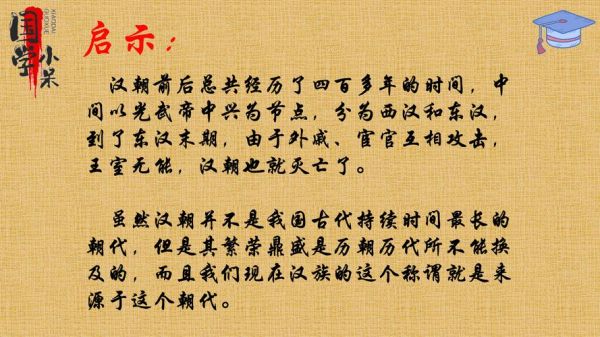 国学
小呆
XIAODAI
GUOXUE
启示：
汉朝前后总共经历了四百多年的时间，中
间以光武帝中兴为节点，分为西汉和东汉，
到了东汉末期，由于外戚、宦官互相攻击，
王室无能，汉朝也就灭亡了。
虽然汉朝并不是我国古代持续时间最长的
朝代，但是其繁荣鼎盛是历朝历代所不能换
及的，而且我们现在汉族的这个称谓就是来
源于这个朝代。